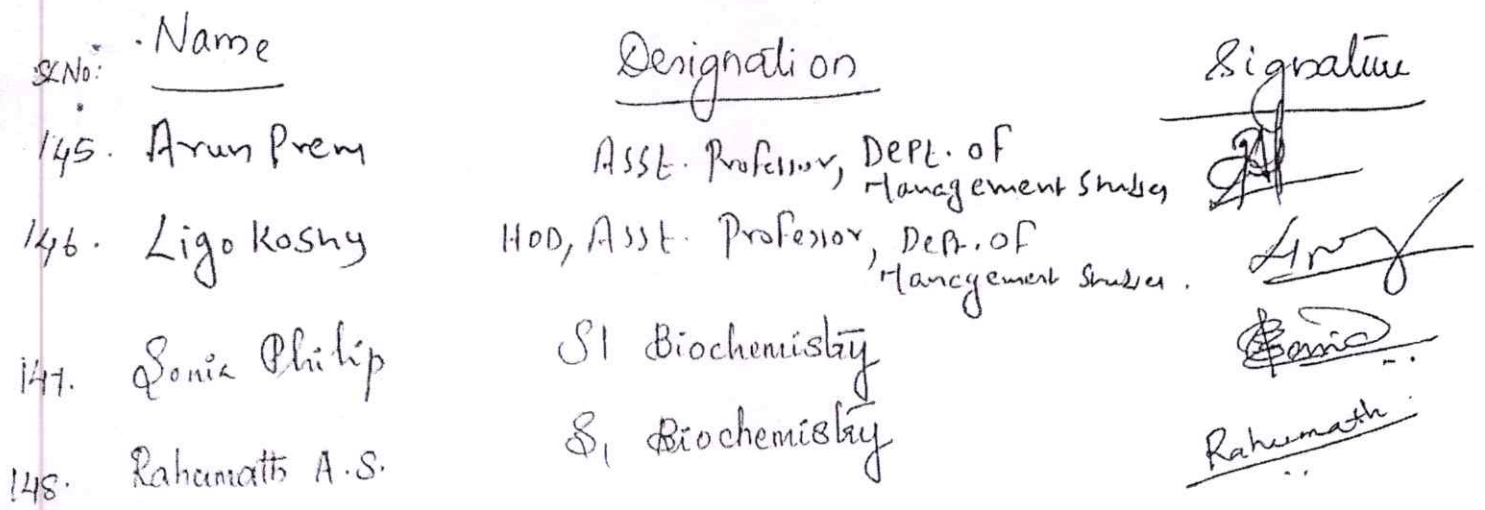 Sl.No: Name Designation Signature
145. Arun Prem Asst. Professor, Dept. of
Management Studies
146. Ligo Koshy HOD, Asst. Professor, Dept. of
Management Studies.
147. Sonia Philip S1 Biochemistry Sonia
148. Rahumath A.S. S1 Biochemistry Rahumath